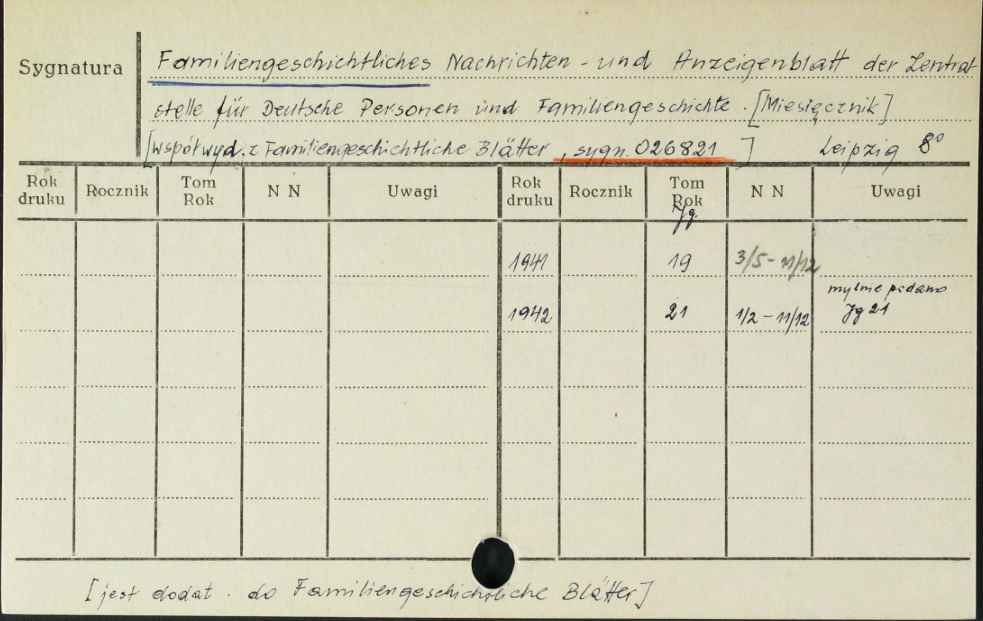 Sygnatura
Familiengeschichtliches Nachrichten - und Anzeigenblatt der Zentral
stelle für Deutsche Personen und Familiengeschichte. [Miesięcznik]
[współwyd. z Familiengeschichtliche Blätter, sygn. 026821] Leipzig 8°
Rok druku Rocznik Tom Rok N N Uwagi Rok druku Rocznik Tom Rok N N Uwagi
Jg.
1941 19 3/5 - 11/12
mylnie podano
1942 21 1/2 - 11/12 Jg 21
[jest dodat. do Familiengeschichtliche Blätter]